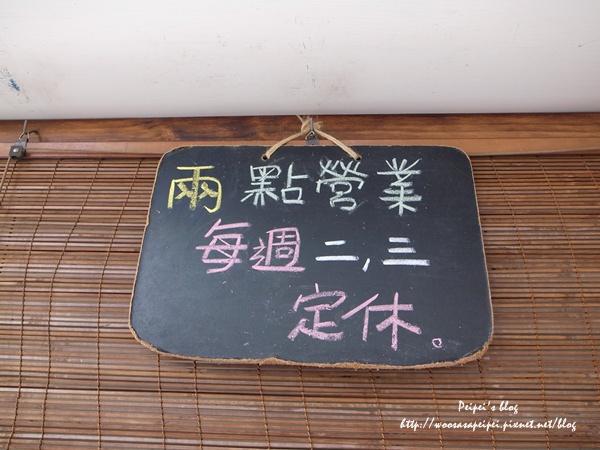 兩點營業
每週二,三
定休。
Peipei's blog
http://woosasapeipei.pixnet.net/blog